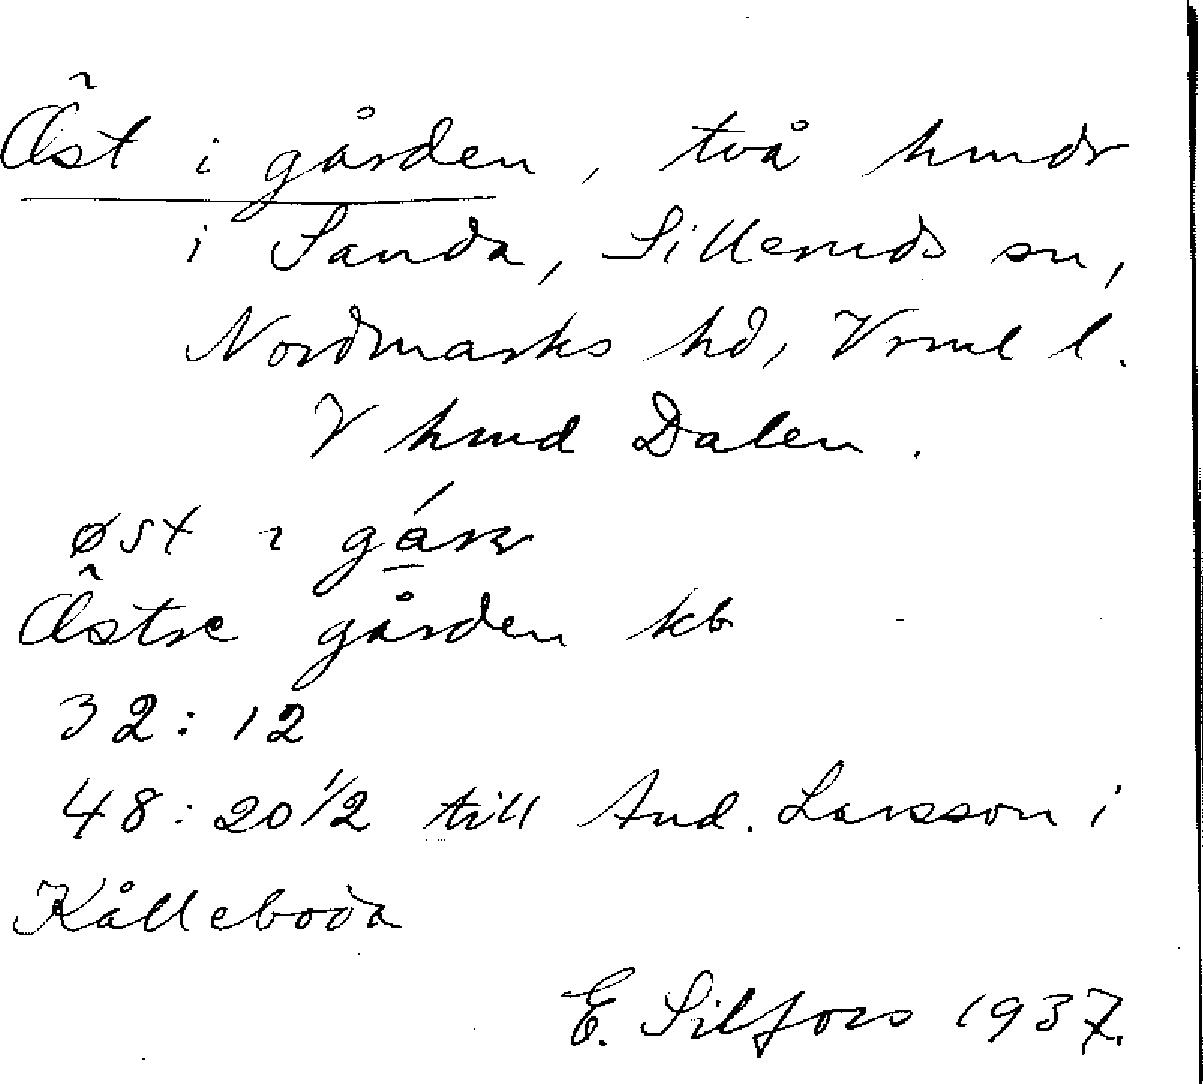 Öst i gården, två hmdr
i Sanda, Silleruds sn,
Nordmarks hd, Vrml l.
V hmd Dalen.
øst i
Östre gården kb
32:12
48:20 1/2 till And. Larsson i
Kålleboda
E. Silfors 1937.